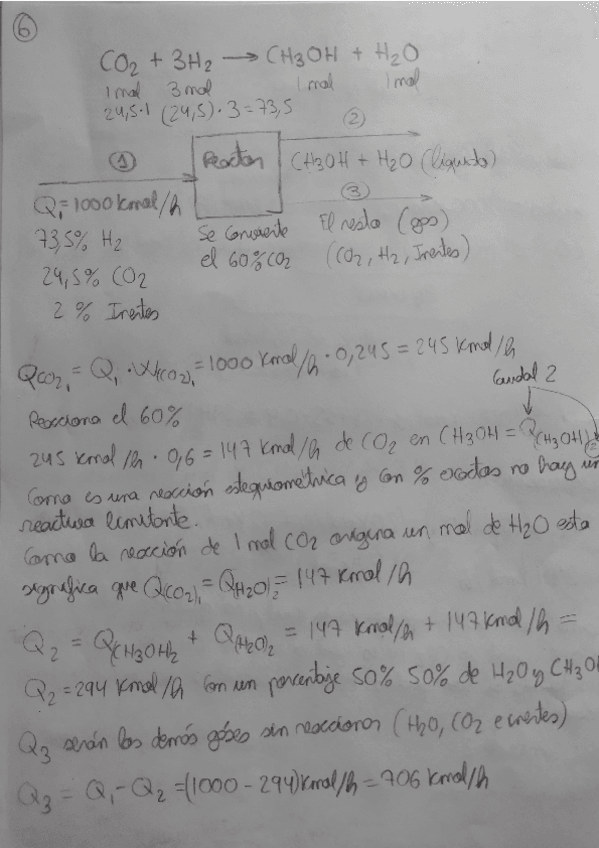 6
CO2 + 3H2 → CH3OH + H2O
1mol 3mol 1mol 1mol
24,5·1 (24,5)·3=73,5
1 Reactor 2
CH3OH + H2O (líquido)
3
Q1=1000 Kmol/h
73,5% H2
24,5% CO2
2% Inertes
Se convierte
el 60% CO2
El resto (gas)
(CO2, H2, Inertes)
QCO21 = Q1 · W(CO2)1 = 1000 Kmol/h · 0,245 = 245 Kmol/h
Caudal 2
Reacciona el 60%
245 Kmol/h · 0,6 = 147 Kmol/h de CO2 en CH3OH = Q(CH3OH)2
Como es una reacción estequiométrica y con % exactos no hay un
reactivo limitante.
Como la reacción de 1 mol CO2 origina un mol de H2O esto
significa que Q(CO2)1 = Q(H2O)2 = 147 Kmol/h
Q2 = Q(CH3OH)2 + Q(H2O)2 = 147 Kmol/h + 147 Kmol/h =
Q2 = 294 Kmol/h con un porcentaje 50% 50% de H2O y CH3OH
Q3 serán los demás gases sin reaccionar (H2O, CO2 e inertes)
Q3 = Q1 - Q2 = (1000 - 294) Kmol/h = 706 Kmol/h